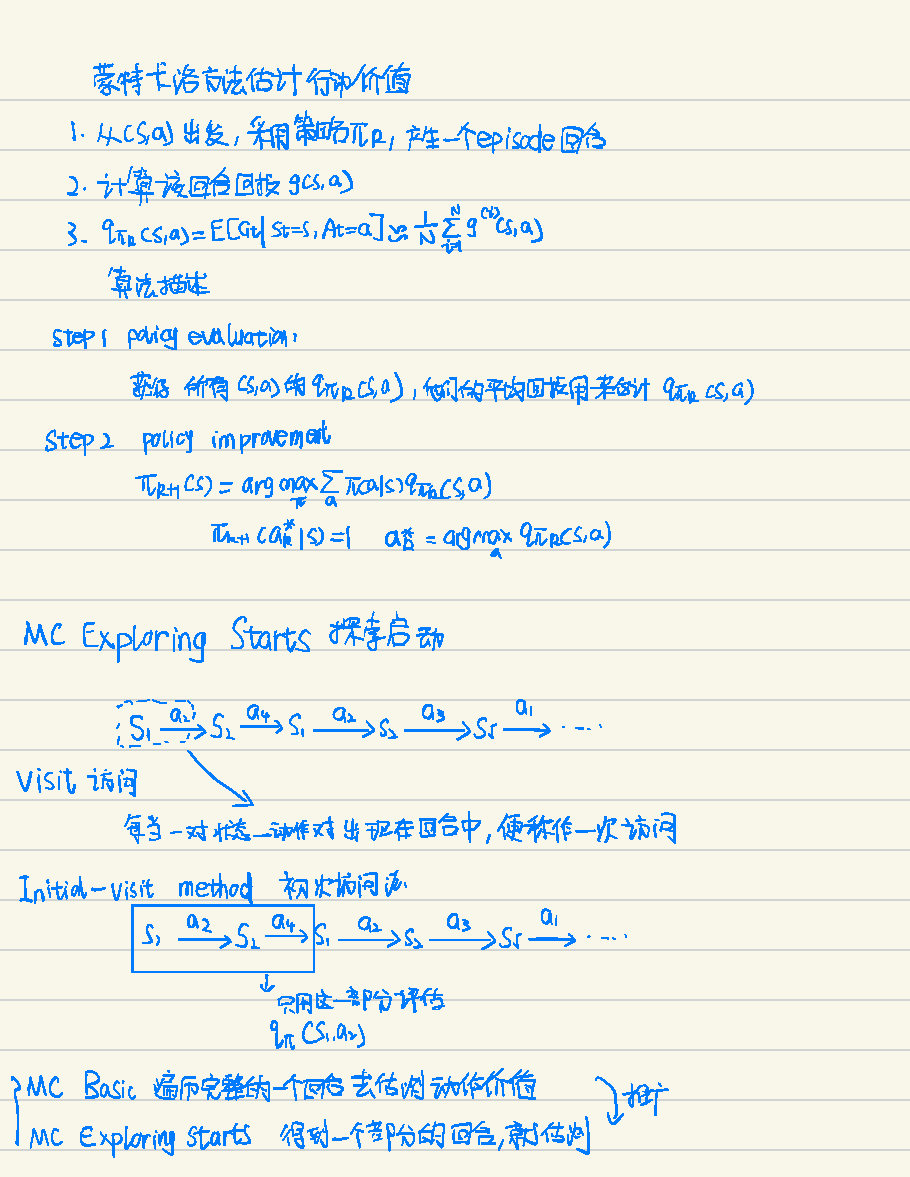 蒙特卡洛方法估计行动价值
1. 从(s,a)出发,采用策略πk,产生一个episode回合
2. 计算该回合回报g(s,a)
3. qπk(s,a)=E[Gt|St=s,At=a]≈1/N Σ(i=1 to N) g^(i)(s,a)
算法描述
Step1 policy evaluation:
获得 所有(s,a)的qπk(s,a),他们的平均回报用来估计 qπk(s,a)
Step2 policy improvement
πk+1(s)=argmaxπ Σa π(a|s)qπk(s,a)
πk+1(ak*|s)=1 ak*=argmaxa qπk(s,a)
MC Exploring Starts 探索启动
S1 –a2→ S2 –a4→ S1 –a2→ S2 –a3→ S5 –a1→ ····
Visit 访问
每当一对状态-动作对出现在回合中,便称作一次访问
Initial-visit method 初次访问法
S1 –a2→ S2 –a4→ S1 –a2→ S2 –a3→ S5 –a1→ ····
↓ 只用这一部分评估
qπ(S1,a2)
MC Basic 遍历完整的一个回合去估测动作价值
推广
MC Exploring Starts 得到一个部分的回合,就估测